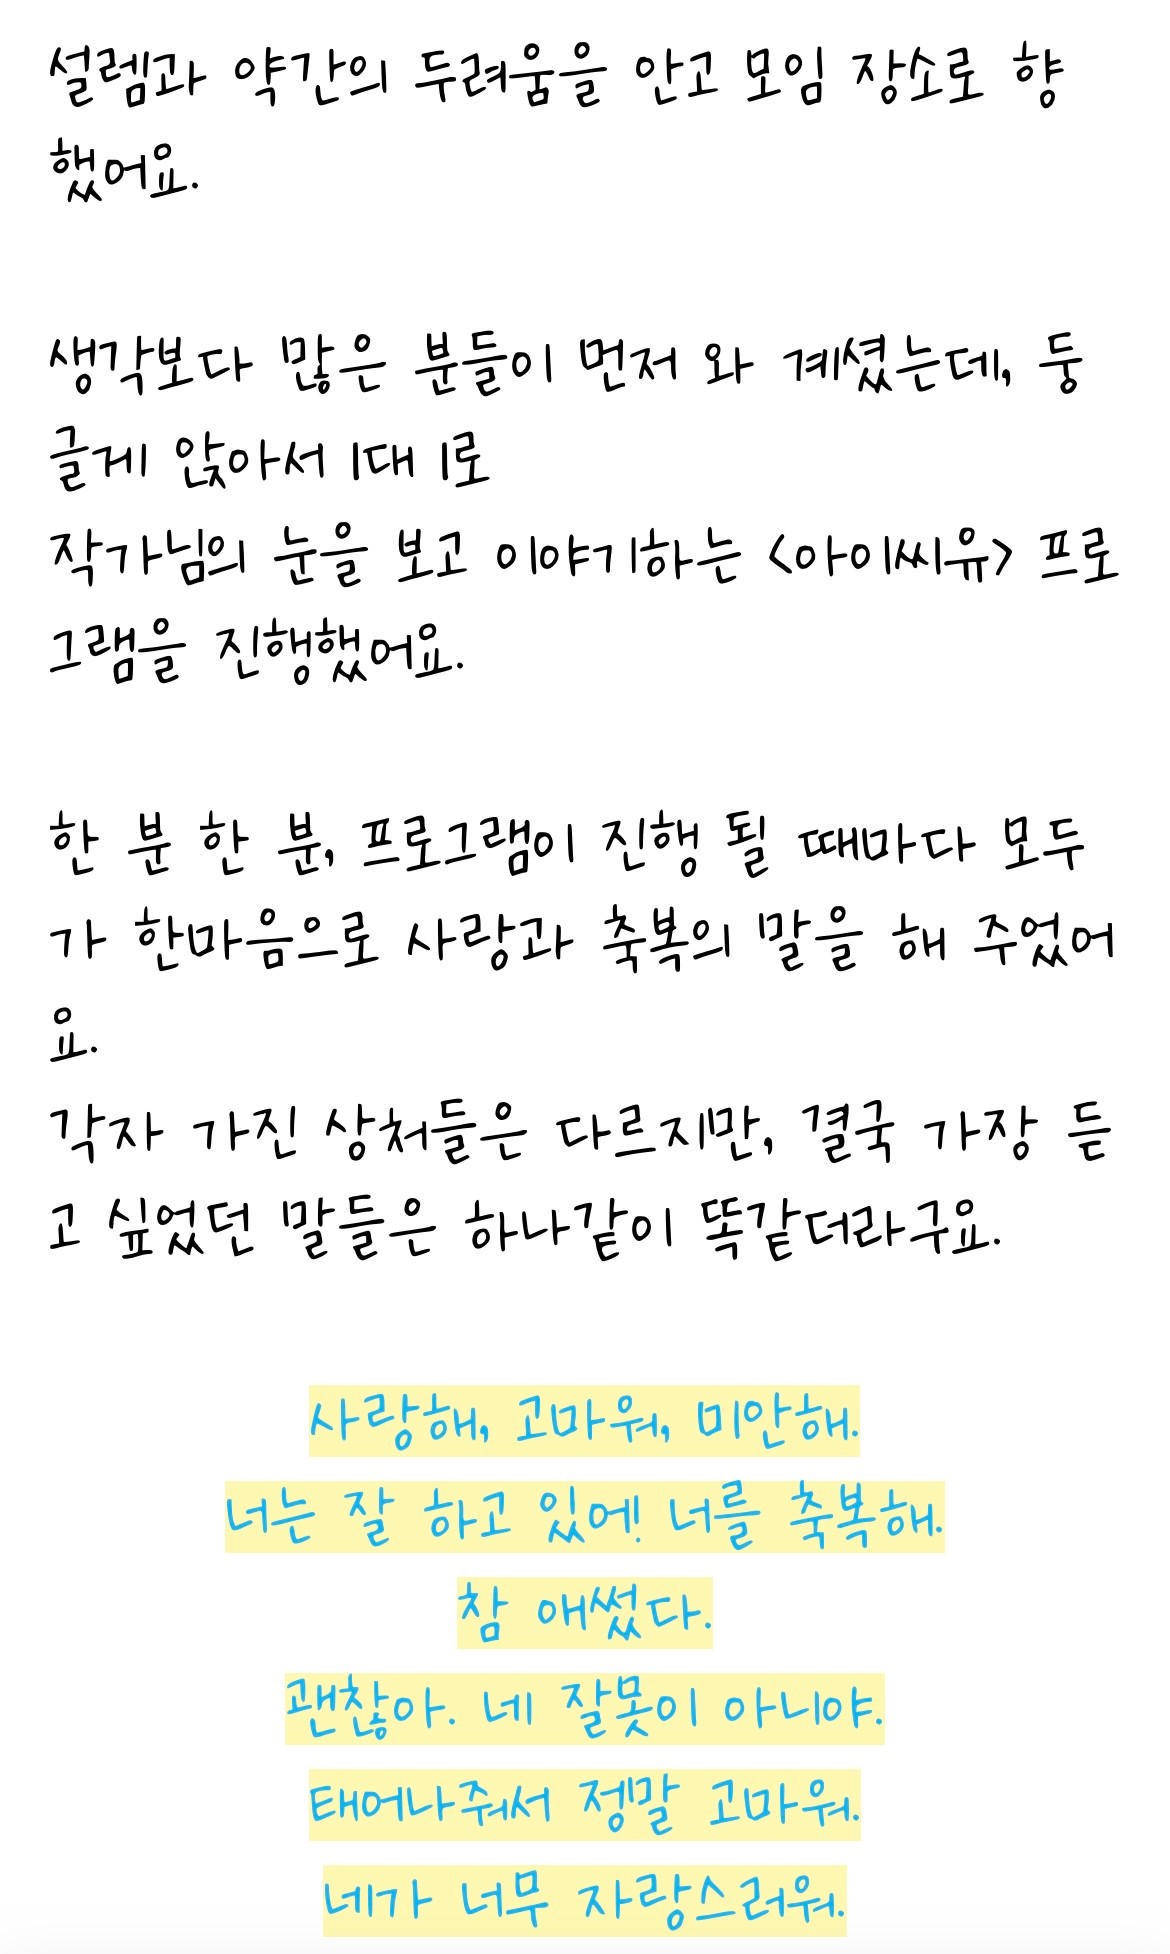 설렘과 약간의 두려움을 안고 모임 장소로 향
했어요.
생각보다 많은 분들이 먼저 와 계셨는데, 둥
글게 앉아서 1대 1로
작가님의 눈을 보고 이야기하는 <아이씨유> 프로
그램을 진행했어요.
한 분 한 분, 프로그램이 진행 될 때마다 모두
가 한마음으로 사랑과 축복의 말을 해 주었어
요.
각자 가진 상처들은 다르지만, 결국 가장 듣
고 싶었던 말들은 하나같이 똑같더라구요.
사랑해, 고마워, 미안해.
너는 잘 하고 있에! 너를 축복해.
참 애썼다.
괜찮아. 네 잘못이 아니야.
태어나줘서 정말 고마워.
네가 너무 자랑스러워.